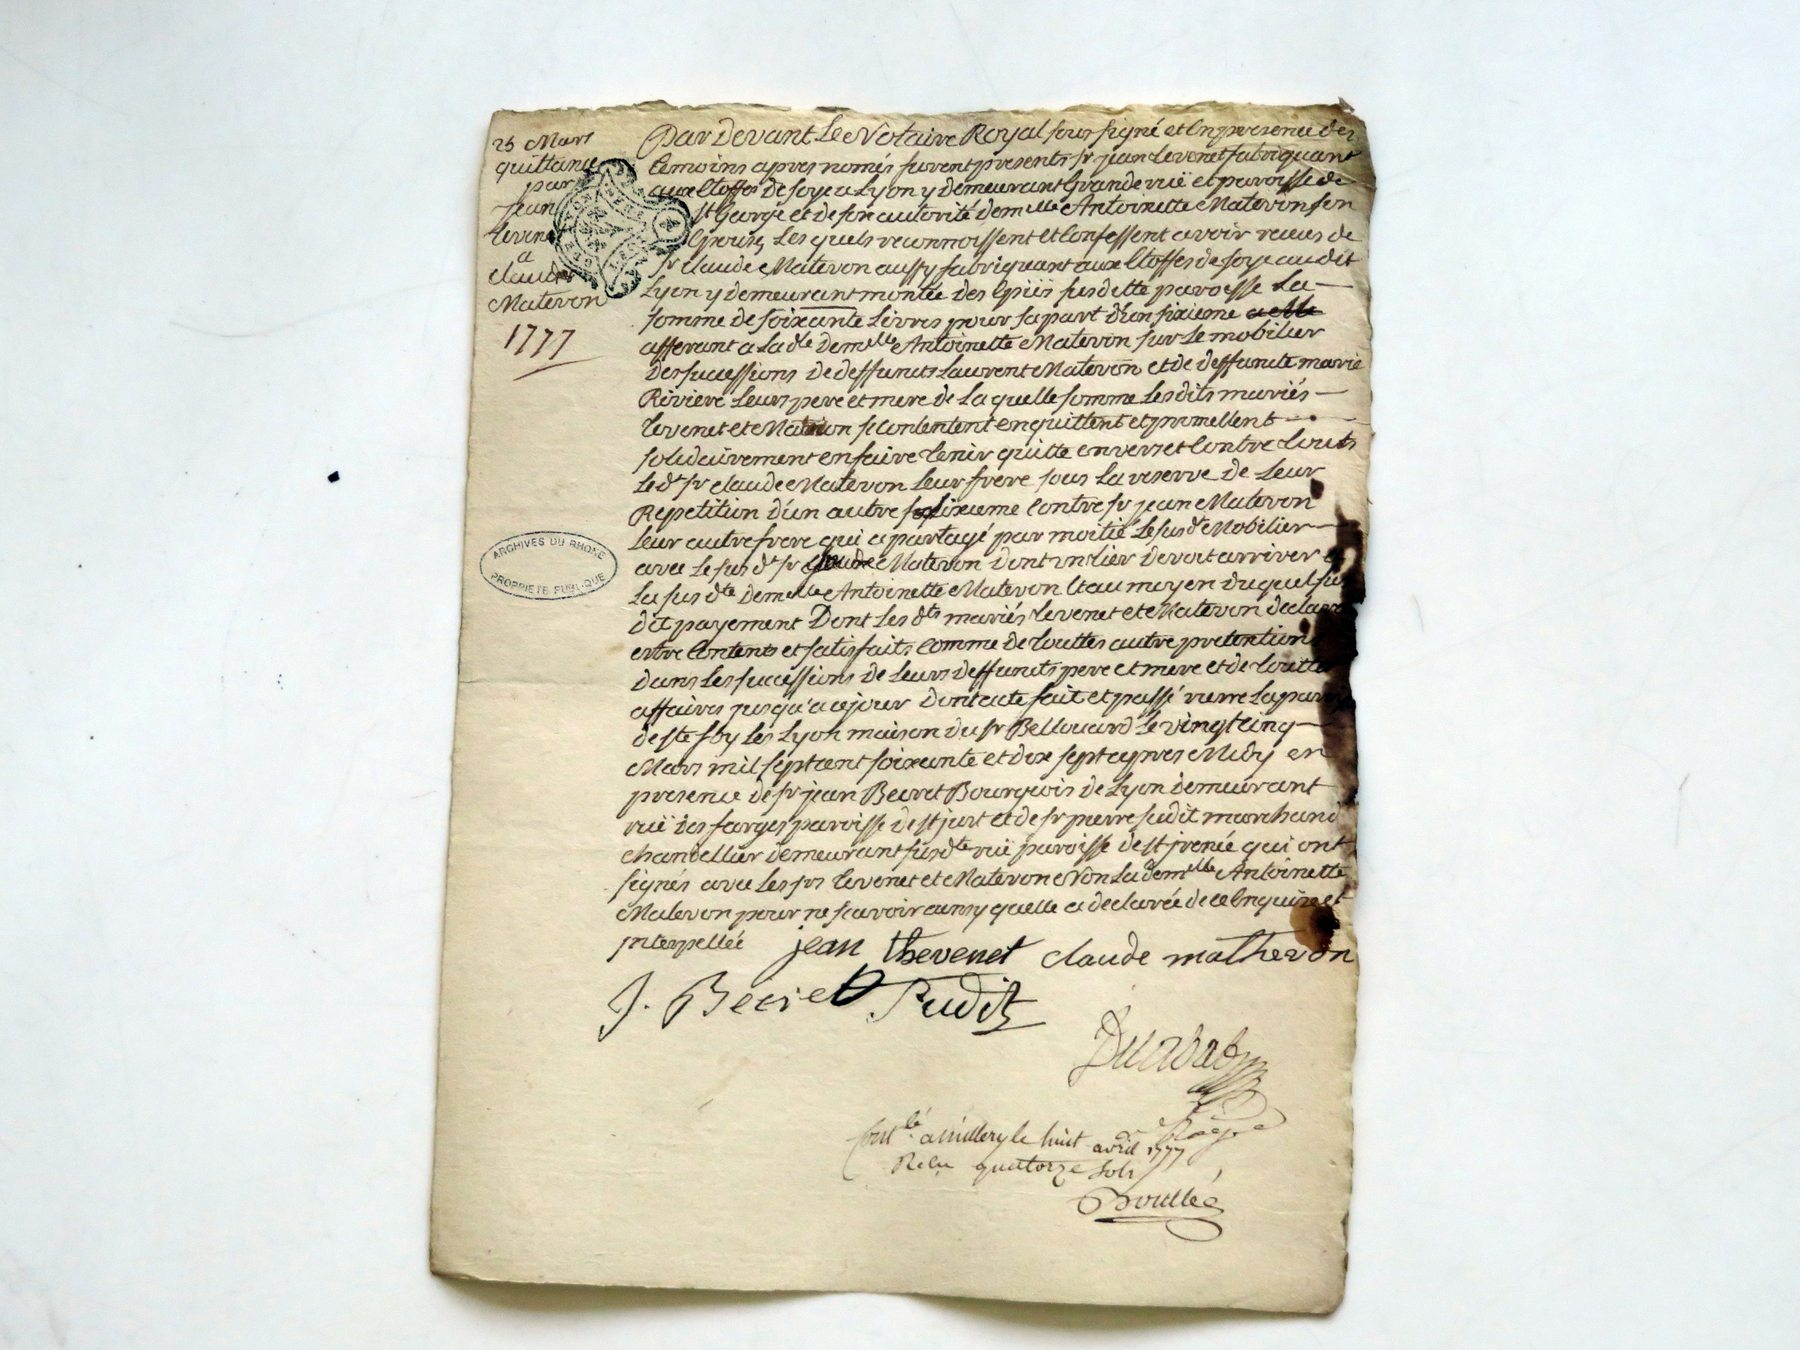 25 Mars
quittance
par
jean
tevenet
a
claude
Matevon
1777
GENERALITE DE LYON
ARCHIVES DU RHONE
PROPRIETE PUBLIQUE
Par Devant Le Notaire Royal sous signé et En presence des
temoins apres només furent presents sr jean tevenet fabriquant
aux Etoffes de soye a Lyon y demeurant Grande ruë et paroisse de
st George et de son autorité demlle Antoinette Matevon son
Epouse, Les quels reconnoissent et Confessent avoir reçus de
sr claude Matevon aussy fabriquant aux Etoffes de soye audit
Lyon y demeurant montée des Epiës susditte paroisse La
somme de soixante Livres pour sa part d'un sixieme a elle
afferant a La dte demlle Antoinette Matevon sur Le mobilier
des sucessions de deffuncts Laurent Matevon et de deffuncte marie
Riviere Leurs pere et mere de La quelle somme Les dits mariés
tevenet et Matevon se Contentent en quittent et promettent
solidairement en faire tenir quitte envers et Contre touts
Le dt sr claude Matevon Leur frere sous La reserve de Leur
Repetition d'un autre sixieme Contre sr jean Matevon
Leur autre frere qui a partagé par moitié Le susdt Mobilier
avec Le sus dt sr Claude Matevon dont un tier devoit arriver a
La sus dte demlle Antoinette Matevon Et au moyen du quel sus
dit payement Dont Les dts mariés tevenet et Matevon declarent
estre Contents et satisfaits Comme de touttes autre pretentions
dans Les sucessions de Leurs deffuncts pere et mere et de touttes
affaires jusqu'a ce jour dont acte fait et passé riere La paroisse
de ste foy Les Lyon maison du sr Bellouard Le vingt cinq
Mars mil sept cent soixante et dix sept apres Midy en
presence de sr jean Becret Bourgeois de Lyon demeurant
ruë des farges paroisse de st just et de sr pierre sudit marchand
chandellier demeurant susdte ruë paroisse de st jrenée qui ont
signés avec Les srs tevenet et Matevon Non La demlle Antoinette
Matevon pour ne sçavoir ainsy quelle a declarée de ce Enquise et
jnterpellée
jean thevenet claude mathevon
J. Becret Sudit
Contlé a millery le huit avril 1777
Reçu quatorze sols
Boullée